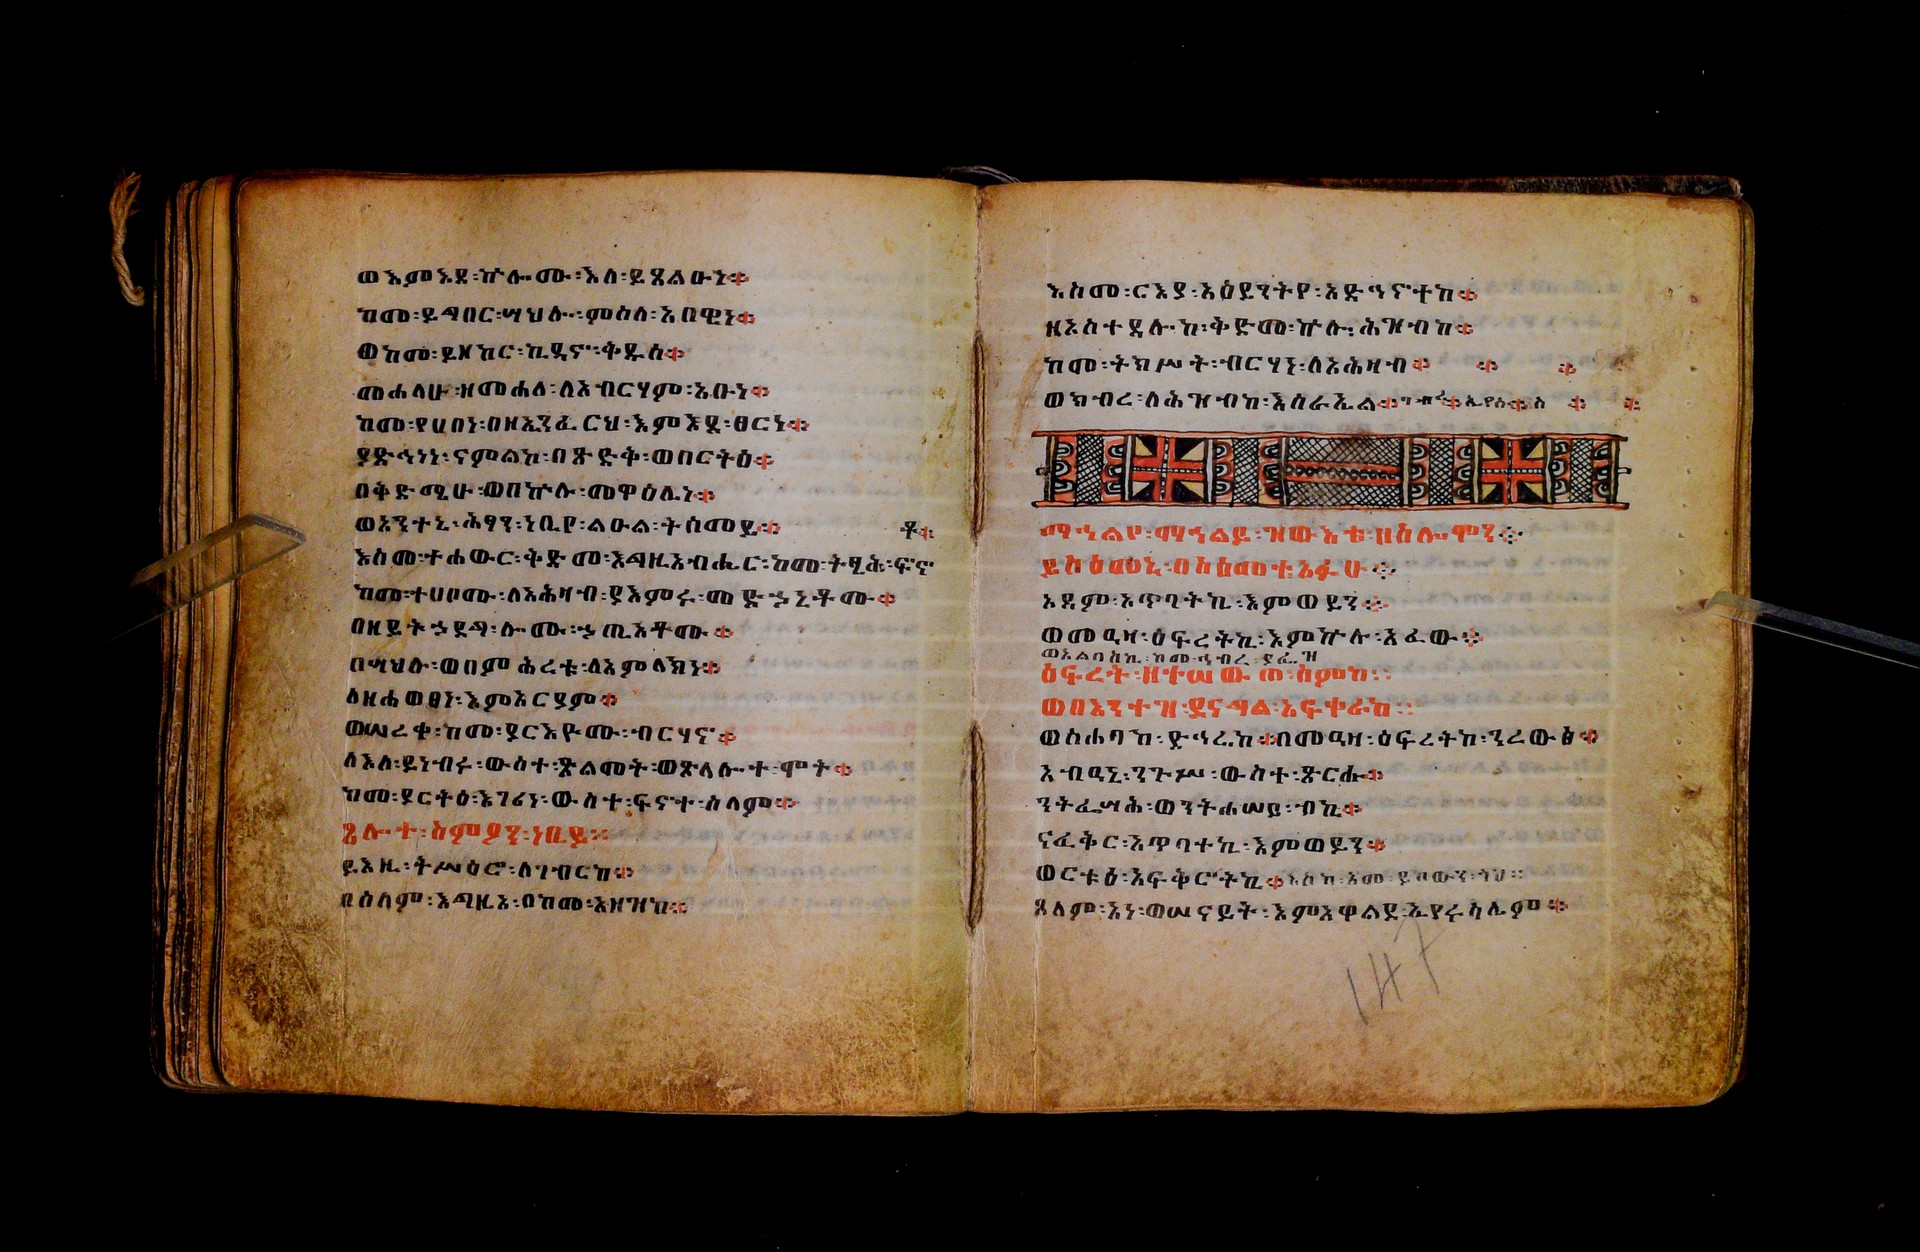 ወእምእደ፡ኵሎሙ፡እለ፡ይጸልዑነ፨
ከመ፡ይግበር፡ሣህሎ፡ምስለ፡አበዊነ፨
ወከመ፡ይዘከር፡ኪዳኖ፡ቅዱሰ፨
መሐላሁ፡ዘመሐለ፡ለአብርሃም፡አቡነ፨
ከመ፡የሀበነ፡በዘኢንፈርህ፡እምእደ፡ፀርነ፨
ያድኅነነ፡ናምልኮ፡በጽድቅ፡ወበርትዕ፨
በቅድሜሁ፡ወበኵሉ፡መዋዕሊነ፨
ወአንተኒ፡ሕፃን፡ነቢየ፡ልዑል፡ትሰመይ፨ ቶ፨
እስመ፡ተሐውር፡ቅድመ፡እግዚአብሔር፡ከመ፡ትፂሕ፡ፍኖ
ከመ፡ተሀቦሙ፡ለአሕዛብ፡ያእምሩ፡መድኃኒቶሙ፨
በዘይትኃደግ፡ሎሙ፡ኃጢአቶሙ፨
በሣህሉ፡ወበምሕረቱ፡ለአምላክነ፨
ለዘሐወፀነ፡እምአርያም፨
ወሠረቀ፡ከመ፡ያርእዮሙ፡ብርሃኖ፨
ለእለ፡ይነብሩ፡ውስተ፡ጽልመት፡ወጽላሎተ፡ሞት፨
ከመ፡ያርትዕ፡እገሪነ፡ውስተ፡ፍኖተ፡ሰላም፨
ጸሎተ፡ስምዖን፡ነቢይ፨
ይእዜ፡ትሥዕሮ፡ለገብርከ፨
በሰላም፡እግዚእ፡በከመ፡አዘዝከ፨
እስመ፡ርእያ፡አዕይንትየ፡አድኅኖተከ፨
ዘአስተዳሎከ፡ቅድመ፡ኵሉ፡ሕዝብከ፨
ከመ፡ትክሥት፡ብርሃነ፡ለአሕዛብ፨ ፨ ፨
ወክብረ፡ለሕዝብከ፡እስራኤል፨
ማኅልየ፡ማኅልይ፡ዝውእቱ፡ዘሰሎሞን፨
ይስዕመኒ፡በስዕመተ፡አፉሁ፨
አዳም፡አጥባትኪ፡እምወይን፨
ወመዓዛ፡ዕፍረትኪ፡እምኵሉ፡አፈው፨
ወአልባስኪ፡ከመ፡ኀብረ፡ያፈ፡ዝ
ዕፍረት፡ዘተሠውጠ፡ስምከ፨
ወበእንተዝ፡ደናግል፡አፍቀራከ፨
ወስሐባከ፡ድኅሬከ፨በመዓዛ፡ዕፍረትከ፡ንረውፅ፨
አብዓኒ፡ንጉሥ፡ውስተ፡ጽርሑ፨
ንትፌሣሕ፡ወንትሐሠይ፡ብኪ፨
ናፈቅር፡አጥባተኪ፡እምወይን፨
ወርቱዕ፡አፍቅሮትኪ፨እስከ፡አመ፡ይከውን፡ጎህ፨
ጸላም፡አነ፡ወሠናይት፡እምአዋልደ፡ኢየሩሳሌም፨
147